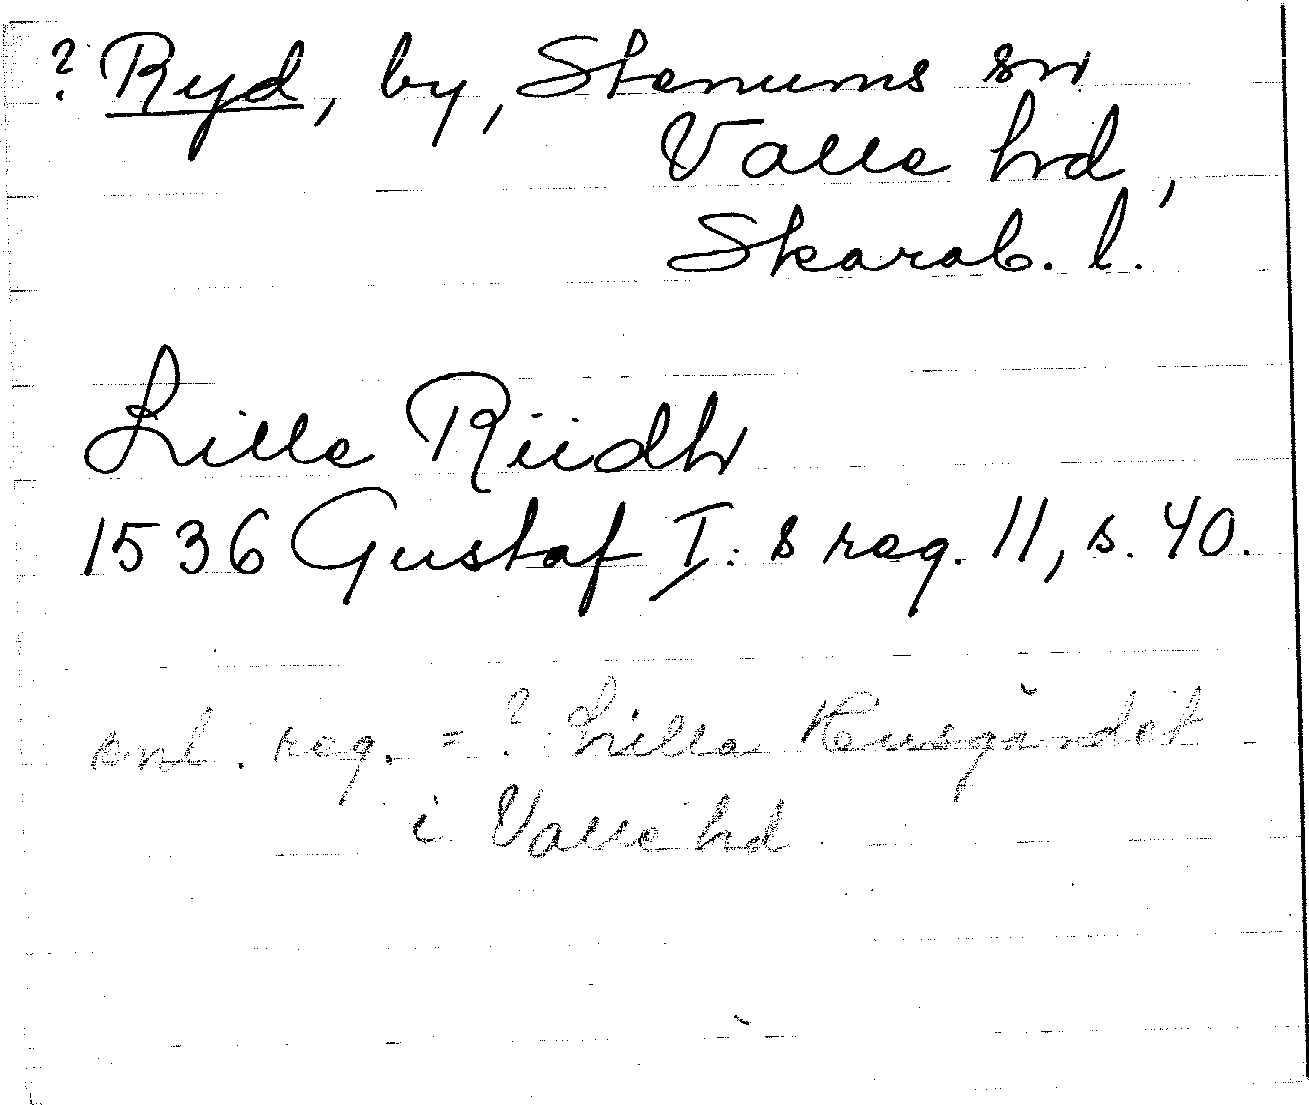 ? Ryd, by, Stenums sn
Valle hrd,
Skarab. l.
Lille Riidh
1536 Gustaf I:s reg. 11, s. 40.
enl. reg. = ? Lilla
i Valle hd